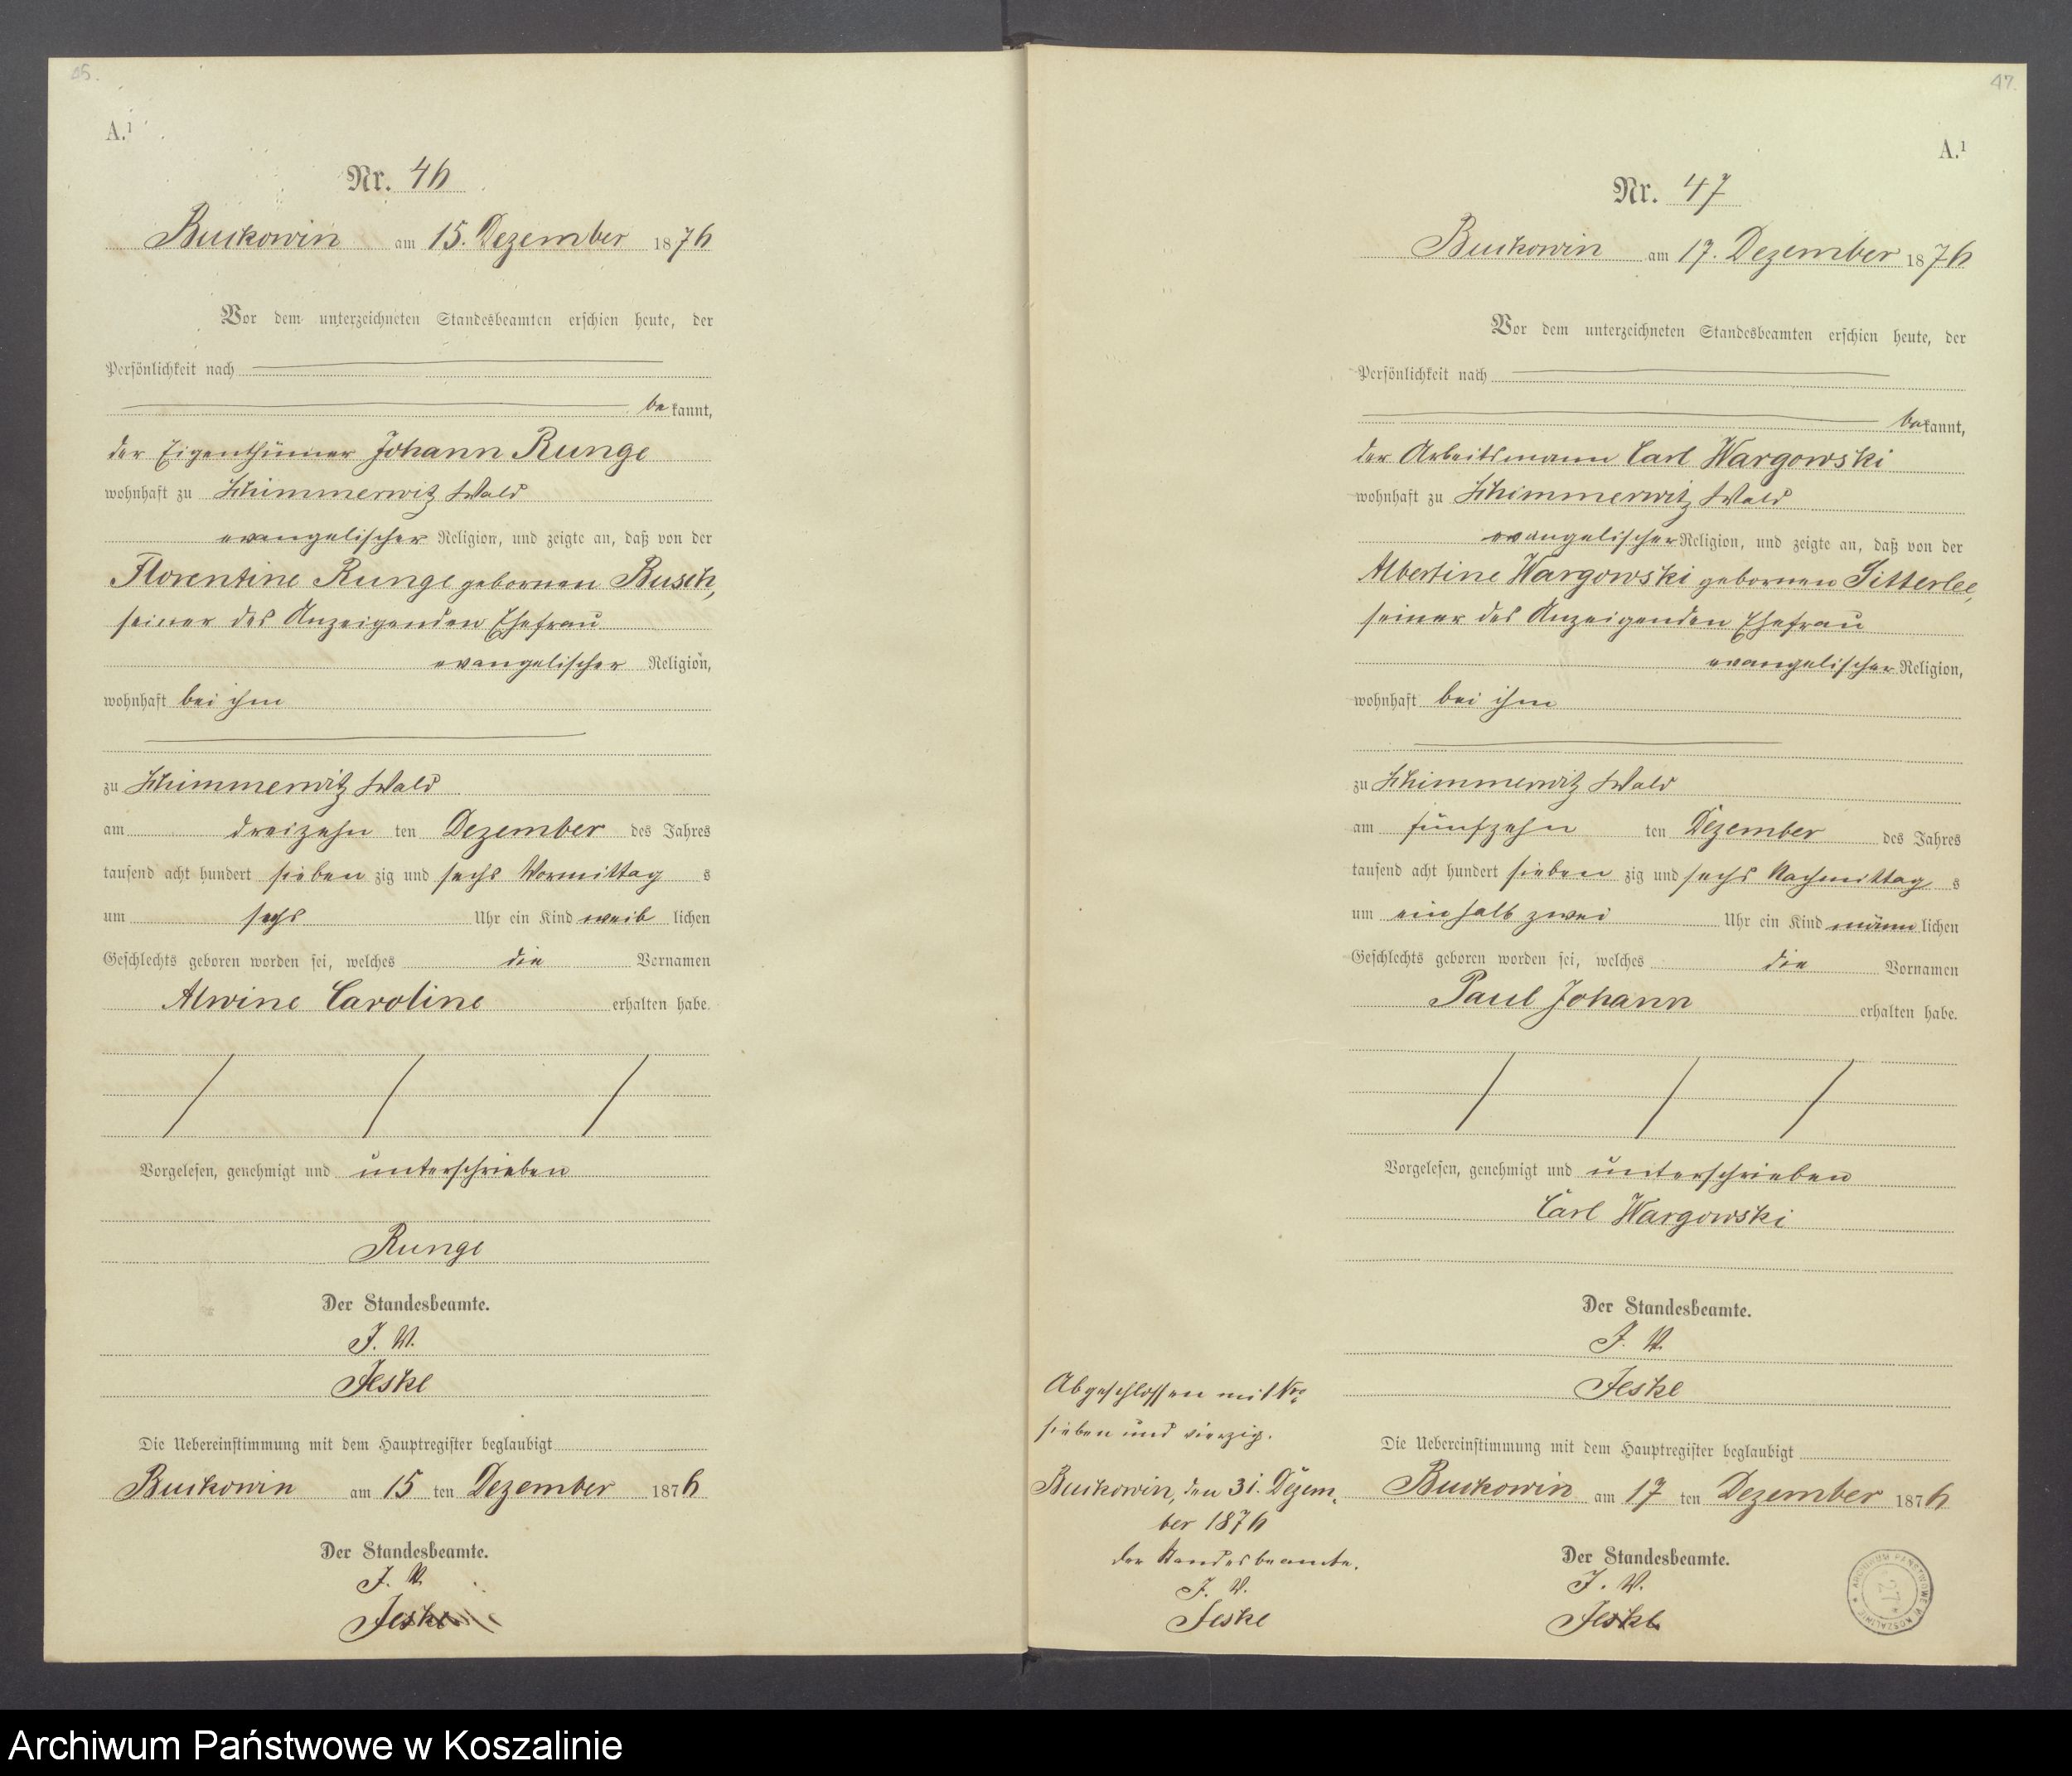 25.
A.¹
Nr. 46
Buckowin am 15. Dezember 1876
Vor dem unterzeichneten Standesbeamten erschien heute, der
Persönlichkeit nach
bekannt,
der Eigenthümer Johann Runge
wohnhaft zu Schimmerwitz Wald
evangelischer Religion, und zeigte an, daß von der
Florentine Runge gebornen Busch,
seiner des Anzeigenden Ehefrau
evangelischer Religion,
wohnhaft bei ihm
zu Schimmerwitz Wald
am dreizehn ten Dezember des Jahres
tausend acht hundert sieben zig und sechs Vormittag s
um sechs Uhr ein Kind weib lichen
Geschlechts geboren worden sei, welches die Vornamen
Alwine Caroline erhalten habe.
Vorgelesen, genehmigt und unterschrieben
Runge
Der Standesbeamte.
J. V.
Jeske
Die Uebereinstimmung mit dem Hauptregister beglaubigt
Buckowin am 15 ten Dezember 1876
Der Standesbeamte.
J. V.
Jeske
47.
A.¹
Nr. 47
Buckowin am 17. Dezember 1876
Vor dem unterzeichneten Standesbeamten erschien heute, der
Persönlichkeit nach
bekannt,
der Arbeitsmann Carl Wargowski
wohnhaft zu Schimmerwitz Wald
evangelischer Religion, und zeigte an, daß von der
Albertine Wargowski gebornen Sitterlee,
seiner des Anzeigenden Ehefrau
evangelischer Religion,
wohnhaft bei ihm
zu Schimmerwitz Wald
am fünfzehn ten Dezember des Jahres
tausend acht hundert sieben zig und sechs Nachmittag s
um ein halb zwei Uhr ein Kind männ lichen
Geschlechts geboren worden sei, welches die Vornamen
Paul Johann erhalten habe.
Vorgelesen, genehmigt und unterschrieben
Carl Wargowski
Der Standesbeamte.
J. V.
Jeske
Die Uebereinstimmung mit dem Hauptregister beglaubigt
Buckowin am 17 ten Dezember 1876
Der Standesbeamte.
J. V.
Jeske
Abgeschlossen mit Nro
sieben und vierzig.
Buckowin, den 31. Dezem-
ber 1876
der Standesbeamte.
J. V.
Jeske
ARCHIWUM PAŃSTWOWE W KOSZALINIE
27
Archiwum Państwowe w Koszalinie